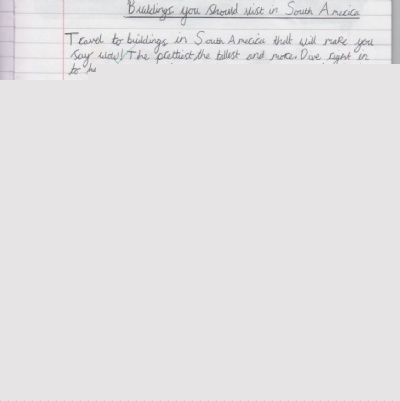 Buildings you should visit in South America
Travel to buildings in South America that will make you
say wow! The prettiest, the tallest and more. Dive right in
to